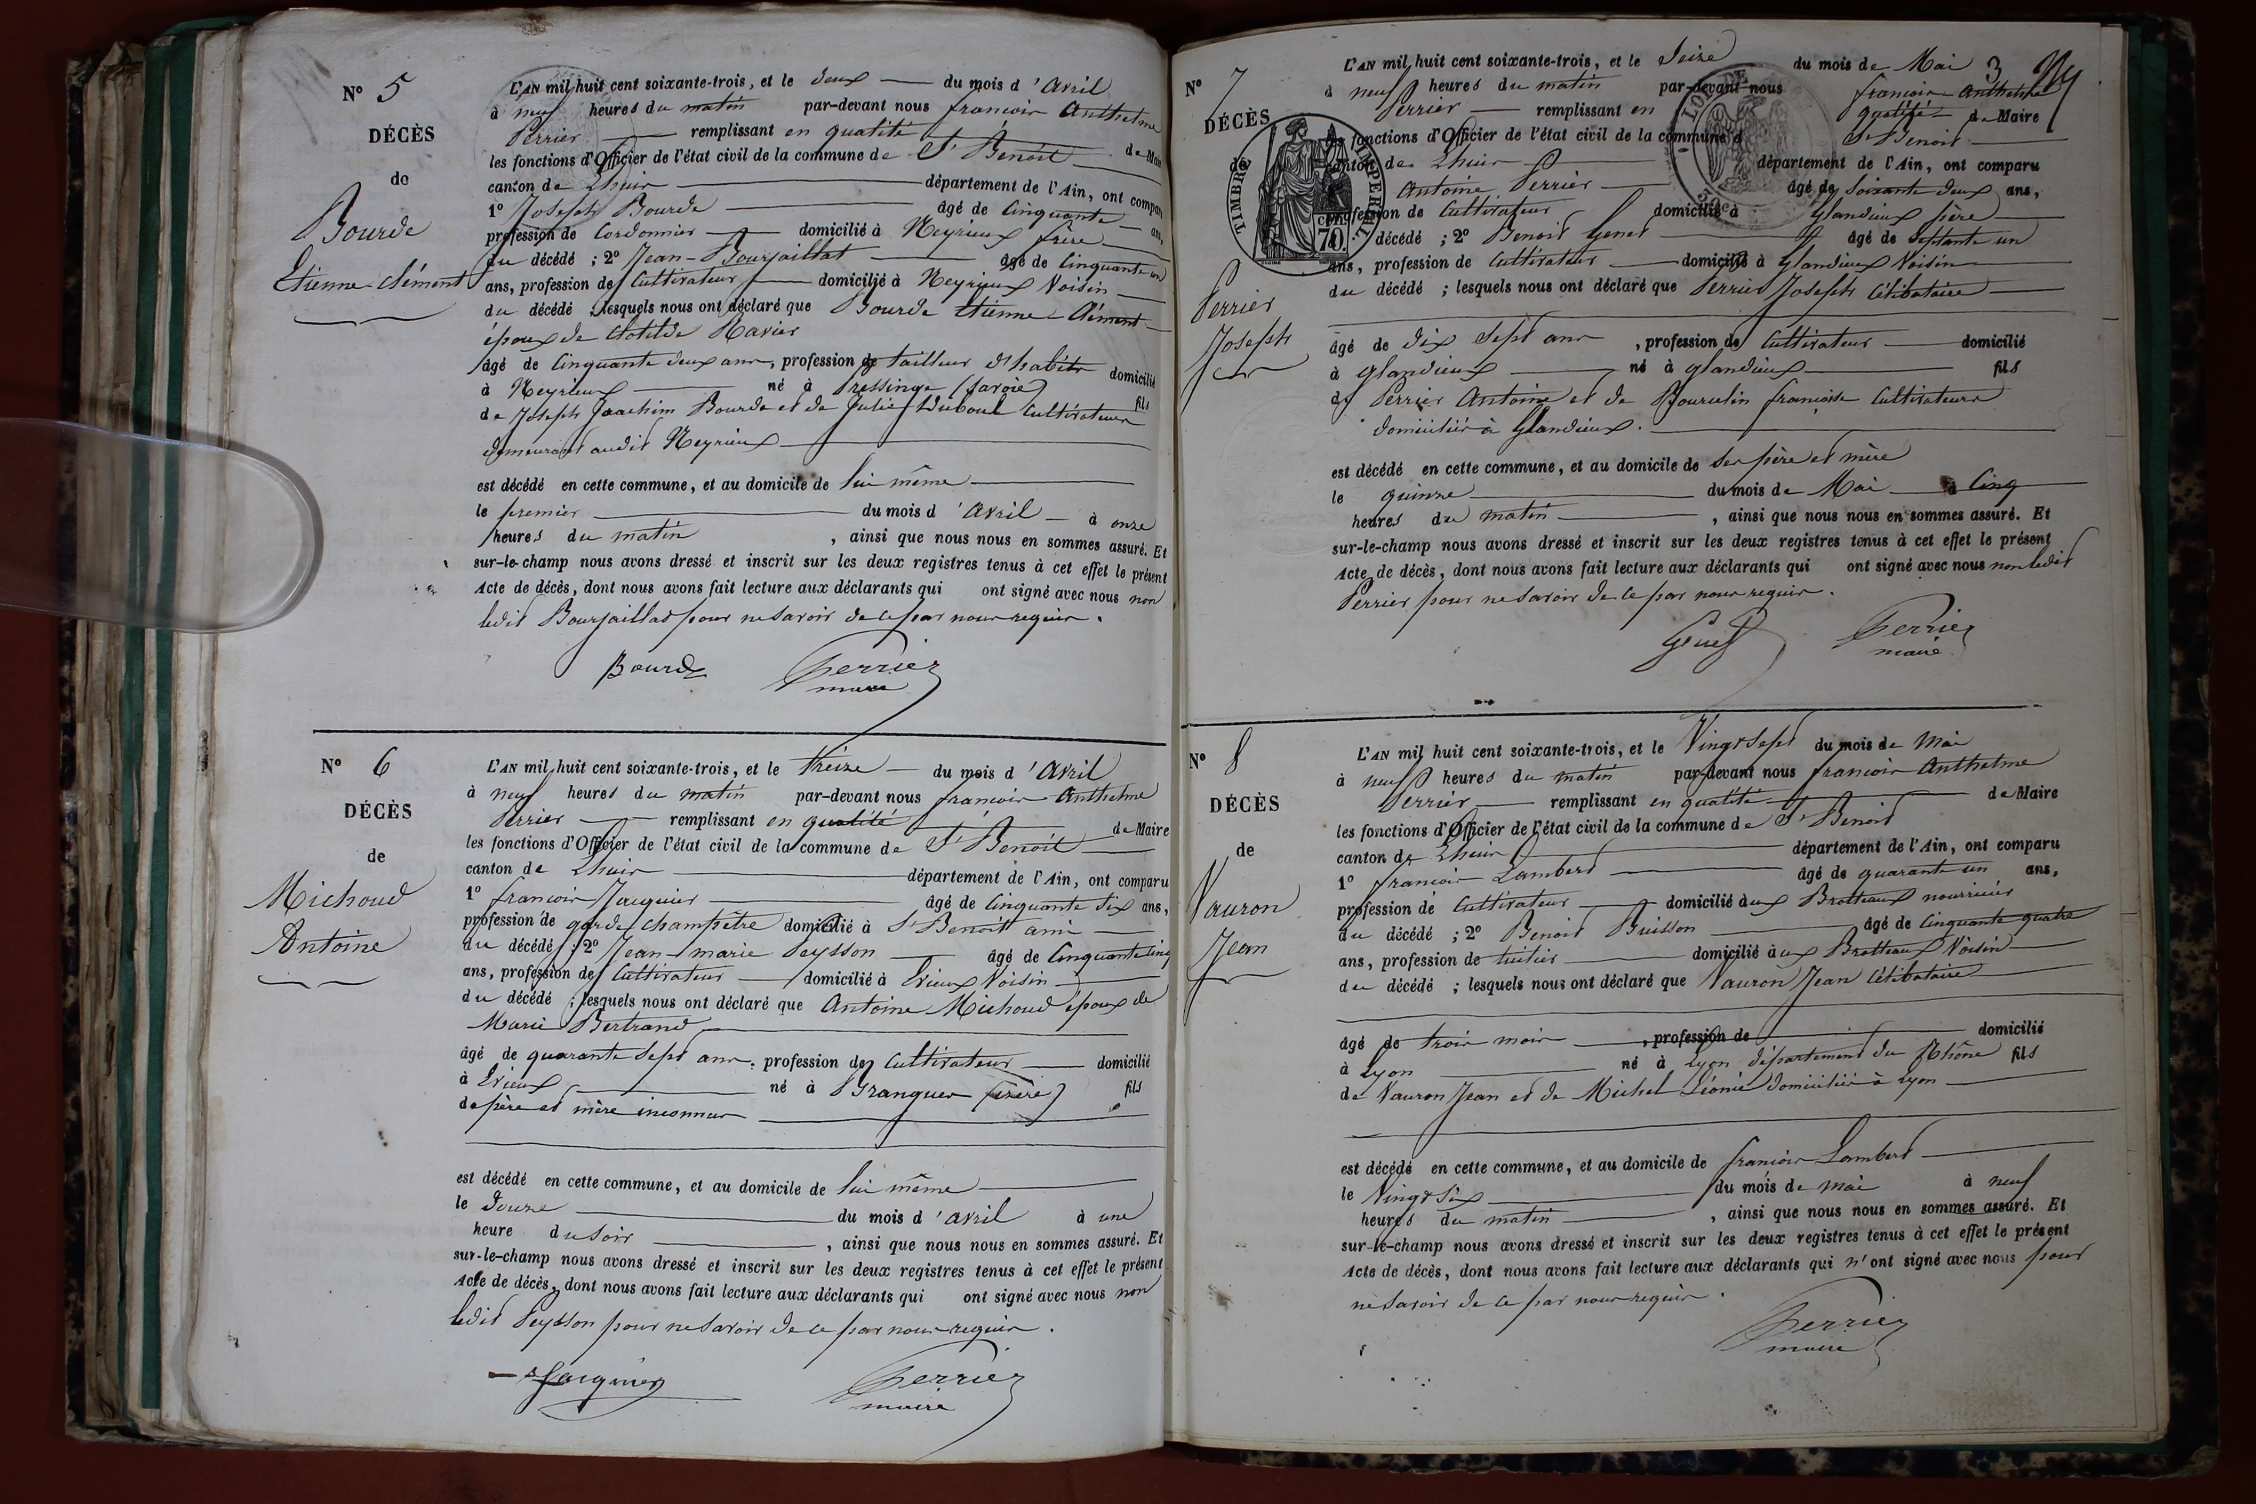 N° 5
DÉCÈS
de
Bourde
Etienne-Clément
L'AN mil huit cent soixante-trois, et le deux du mois d'Avril
à neuf heures du matin par-devant nous françois Anthelme
Perrier remplissant en qualité de Maire
les fonctions d'Officier de l'état civil de la commune de St Benoit
canton de Lhuis département de l'Ain, ont comparu
1° Joseph Bourde âgé de Cinquante ans,
profession de Cordonnier domicilié à Neyrieux frère
du décédé ; 2° Jean-Bourjaillat âgé de Cinquante un
ans, profession de Cultivateur domicilié à Neyrieux Voisin
du décédé ; lesquels nous ont déclaré que Bourde Etienne Clément
époux de Clotilde Ravier
âgé de Cinquante deux ans, profession de tailleur d'habits domicilié
à Neyrieux né à Pressinge (Savoie) fils
de Joseph Joachim Bourde et de Julie Duboul Cultivateurs
demeurant audit Neyrieux
est décédé en cette commune, et au domicile de lui même
le premier du mois d'Avril à onze
heures du matin, ainsi que nous nous en sommes assuré. Et
sur-le-champ nous avons dressé et inscrit sur les deux registres tenus à cet effet le présent
Acte de décès, dont nous avons fait lecture aux déclarants qui ont signé avec nous non
ledit Bourjaillat pour ne savoir de ce par nous requis.
Bourde Perrier
maire
N° 6
DÉCÈS
de
Michoud
Antoine
L'AN mil huit cent soixante-trois, et le treize du mois d'Avril
à neuf heures du matin par-devant nous françois Anthelme
Perrier remplissant en qualité de Maire
les fonctions d'Officier de l'état civil de la commune de St Benoit
canton de Lhuis département de l'Ain, ont comparu
1° françois Jacquier âgé de Cinquante Six ans,
profession de garde champêtre domicilié à St Benoit ami
du décédé ; 2° Jean-marie Peysson âgé de Cinquante cinq
ans, profession de Cultivateur domicilié à Evieux Voisin
du décédé ; lesquels nous ont déclaré que Antoine Michoud époux de
Marie Bertrand
âgé de quarante Sept ans, profession de Cultivateur domicilié
à Evieux né à Brangues (isère) fils
de père et mère inconnus
est décédé en cette commune, et au domicile de lui même
le Douze du mois d'avril à une
heure du soir, ainsi que nous nous en sommes assuré. Et
sur-le-champ nous avons dressé et inscrit sur les deux registres tenus à cet effet le présent
Acte de décès, dont nous avons fait lecture aux déclarants qui ont signé avec nous non
ledit Peysson pour ne savoir de ce par nous requis.
Jacquier Perrier
maire
3
N° 7
DÉCÈS
de
TIMBRE IMPERIAL
70
Perrier
Joseph
L'AN mil huit cent soixante-trois, et le Seize du mois de Mai
à neuf heures du matin par-devant nous françois Anthelme
Perrier remplissant en qualité de Maire
les fonctions d'Officier de l'état civil de la commune de St Benoit
canton de Lhuis département de l'Ain, ont comparu
Antoine Perrier âgé de Soixante deux ans,
profession de Cultivateur domicilié à Glandieux père
décédé ; 2° Benoit Genet âgé de Septante un
ans, profession de Cultivateur domicilié à Glandieux Voisin
du décédé ; lesquels nous ont déclaré que Perrier Joseph Célibataire
âgé de dix Sept ans, profession de Cultivateur domicilié
à glandieux né à glandieux fils
de Perrier Antoine et de Bourulin françoise Cultivateurs
domiciliés à Glandieux.
est décédé en cette commune, et au domicile de Ses père et mère
le quinze du mois de Mai à Cinq
heures du matin, ainsi que nous nous en sommes assuré. Et
sur-le-champ nous avons dressé et inscrit sur les deux registres tenus à cet effet le présent
Acte de décès, dont nous avons fait lecture aux déclarants qui ont signé avec nous non ledit
Perrier pour ne savoir de ce par nous requis.
Genet Perrier
maire
N° 8
DÉCÈS
de
Vauron
Jean
L'AN mil huit cent soixante-trois, et le Vingt Sept du mois de Mai
à neuf heures du matin par-devant nous françois Anthelme
Perrier remplissant en qualité de Maire
les fonctions d'Officier de l'état civil de la commune de St Benoit
canton de Lhuis département de l'Ain, ont comparu
1° françois Lambert âgé de quarante un ans,
profession de Cultivateur domicilié aux Brotteaux nourricier
du décédé ; 2° Benoit Buisson âgé de Cinquante quatre
ans, profession de tuilier domicilié aux Brotteaux Voisin
du décédé ; lesquels nous ont déclaré que Vauron Jean Célibataire
âgé de trois mois, profession de domicilié
à Lyon né à Lyon département du Rhône fils
de Vauron Jean et de Michel Léonie domiciliés à Lyon
est décédé en cette commune, et au domicile de françois Lambert
le Vingt Six du mois de mai à neuf
heures du matin, ainsi que nous nous en sommes assuré. Et
sur-le-champ nous avons dressé et inscrit sur les deux registres tenus à cet effet le présent
Acte de décès, dont nous avons fait lecture aux déclarants qui n'ont signé avec nous pour
ne savoir de ce par nous requis.
Perrier
maire